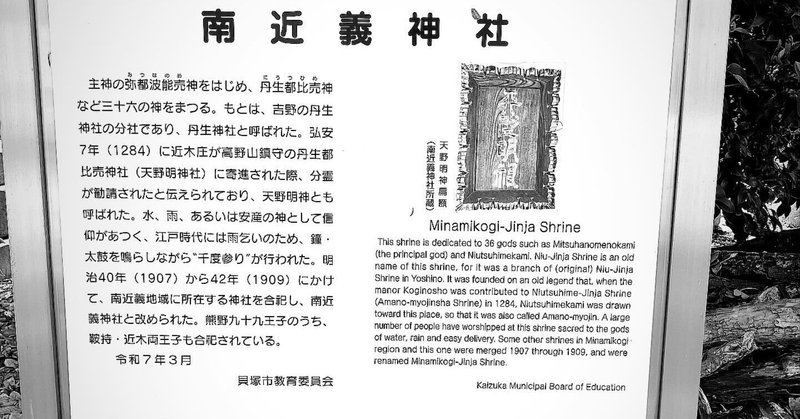 南近義神社
主神の弥都波能売神をはじめ、丹生都比売神
など三十六の神をまつる。もとは、吉野の丹生
神社の分社であり、丹生神社と呼ばれた。弘安
7年（1284）に近木庄が高野山鎮守の丹生都
比売神社（天野明神社）に寄進された際、分霊
が勧請されたと伝えられており、天野明神とも
呼ばれた。水、雨、あるいは安産の神として信
仰があつく、江戸時代には雨乞いのため、鐘・
太鼓を鳴らしながら“千度参り”が行われた。明
治40年（1907）から42年（1909）にかけ
て、南近義地域に所在する神社を合祀し、南近
義神社と改められた。熊野九十九王子のうち、
鞍持・近木両王子も合祀されている。
令和7年3月
貝塚市教育委員会
天野明神扁額
（南近義神社所蔵）
Minamikogi-Jinja Shrine
This shrine is dedicated to 36 gods such as Mitsuhanomenokami
(the principal god) and Niutsuhimekami. Niu-Jinja Shrine is an old
name of this shrine, for it was a branch of (original) Niu-Jinja
Shrine in Yoshino. It was founded on an old legend that, when the
manor Koginosho was contributed to Niutsuhime-Jinja Shrine
(Amano-myojinsha Shrine) in 1284, Niutsuhimekami was drawn
toward this place, so that it was also called Amano-myojin. A large
number of people have worshiped at this shrine sacred to the gods
of water, rain and easy delivery. Some other shrines in Minamikogi-
region and this one were merged 1907 through 1909, and were
renamed Minamikogi-Jinja Shrine.
Kaizuka Municipal Board of Education